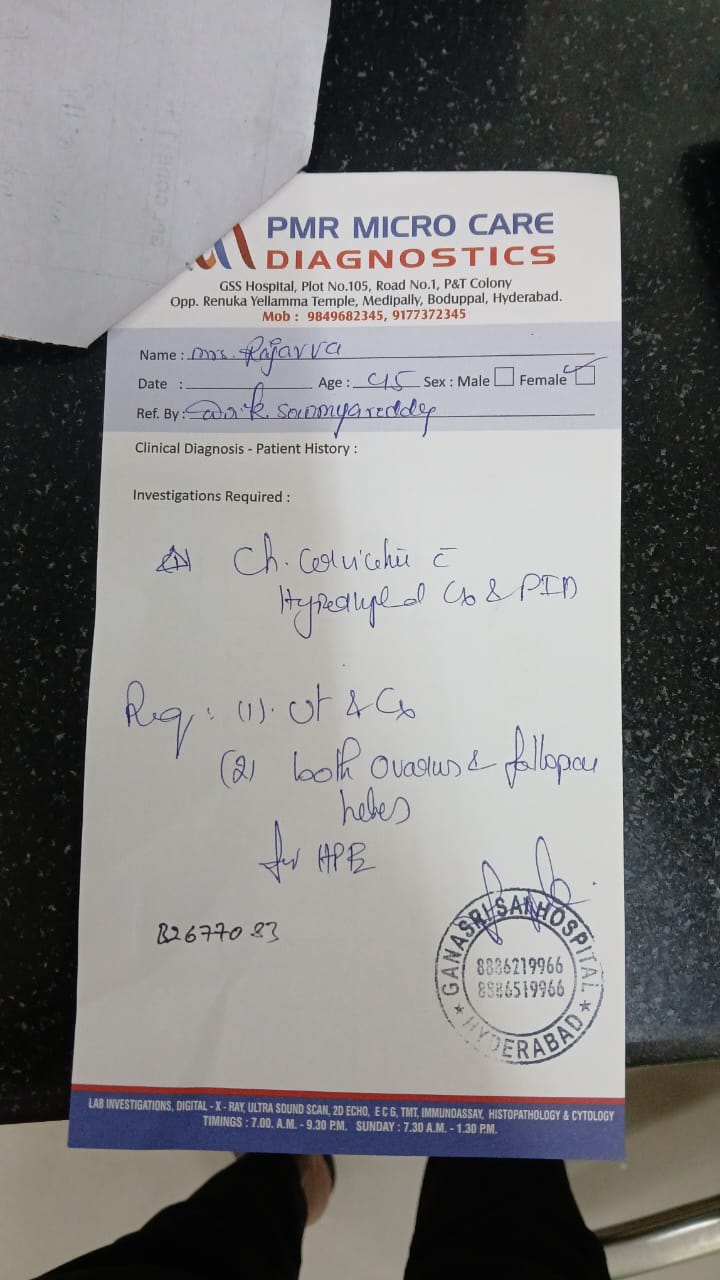 PMR MICRO CARE
DIAGNOSTICS
GSS Hospital, Plot No.105, Road No.1, P&T Colony
Opp. Renuka Yellamma Temple, Medipally, Boduppal, Hyderabad.
Mob : 9849682345, 9177372345
Name : mrs. Rajavva
Date : Age : 45 Sex : Male Female
Ref. By : sowmyareddy
Clinical Diagnosis - Patient History :
Investigations Required :
Ch. Cervicitis c
Cx & PID
Req : (1). Ut & Cx
(2) both ovaries & fallopian
tubes
for HPE
B2677083
GANASRI SAI HOSPITAL
8886219966
8886519966
★ HYDERABAD ★
LAB INVESTIGATIONS, DIGITAL - X - RAY, ULTRA SOUND SCAN, 2D ECHO, E C G, TMT, IMMUNOASSAY, HISTOPATHOLOGY & CYTOLOGY
TIMINGS : 7.00. A.M. - 9.30 P.M. SUNDAY : 7.30 A.M. - 1.30 P.M.